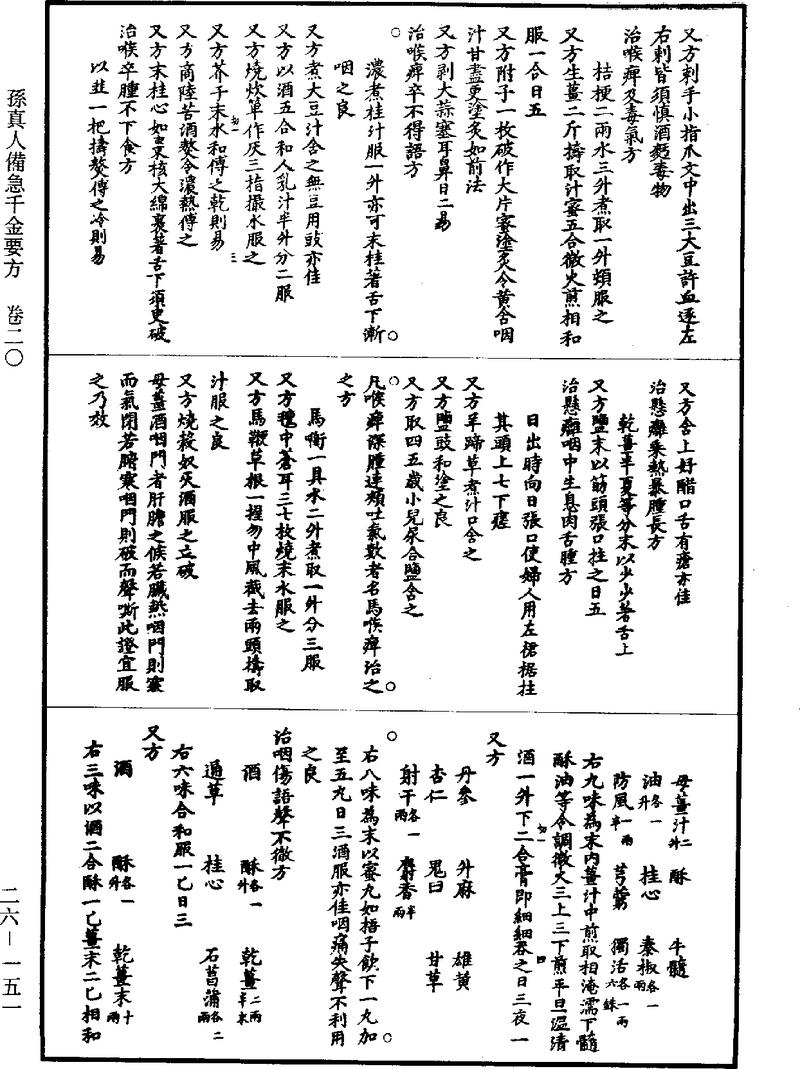 又方刺手小指爪文中出三大豆許血逐左
右刺皆須慎酒麵毒物
治喉痹及毒氣方
桔梗二兩水三升煮取一升頓服之
又方生薑二斤擣取汁蜜五合微火煎相和
服一合日五
又方附子一枚破作大片蜜塗炙令黃含咽
汁甘盡更塗炙如前法
又方剥大蒜塞耳鼻日二易
治喉痹卒不得語方
濃煮桂汁服一升亦可末桂著舌下漸
咽之良
又方煮大豆汁含之無豆用豉亦佳
又方以酒五合和人乳汁半升分二服
又方燒炊箄作灰三指撮水服之
又方芥子末水和傅之乾則易
又方商陸苦酒熬令濃熱傅之
又方末桂心如棗核大綿裹著舌下須臾破
治喉卒腫不下食方
以韭一把擣熬傅之冷則易
又方含上好醋口舌有瘡亦佳
治懸癰垂熱暴腫長方
乾薑半夏等分末以少少著舌上
又方鹽末以筯頭張口拄之日五
治懸癰咽中生息肉舌腫方
日出時向日張口使婦人用左裙裾拄
其頭上七下瘥
又方羊蹄草煮汁口含之
又方鹽豉和塗之良
又方取四五歲小兒尿合鹽含之
凡喉痹深腫連頰吐氣數者名馬喉痹治之
之方
馬銜一具水二升煮取一升分三服
又方氊中蒼耳三七枚燒末水服之
又方馬鞭草根一握勿中風截去兩頭擣取
汁服之良
又方燒穀奴灰酒服之立破
母薑酒咽門者肝膽之候若臟熱咽門則塞
而氣閉若腑寒咽門則破而聲嘶此證宜服
之乃效
母薑汁二升 酥 牛髓
油各一升 桂心 秦椒各一兩
防風一兩半 芎藭 獨活各一兩六銖
右九味為末內薑汁中煎取相淹濡下髓
酥油等令調微火三上三下煎平旦溫清
酒一升下二合膏即細細吞之日三夜一
又方
丹參 升麻 雄黃
杏仁 鬼臼 甘草
射干各一兩 麝香半兩
右八味為末以蜜丸如梧子飲下一丸加
至五丸日三酒服亦佳咽痛失聲不利用
之良
治咽傷語聲不徹方
酒 酥各一升 乾薑二兩半末
通草 桂心 石菖蒲各二兩
右六味合和服一匕日三
又方
酒 酥各一升 乾薑末十兩
右三味以酒二合酥一匕薑末二匕相和
孫真人備急千金要方 卷二〇
二六－一五一